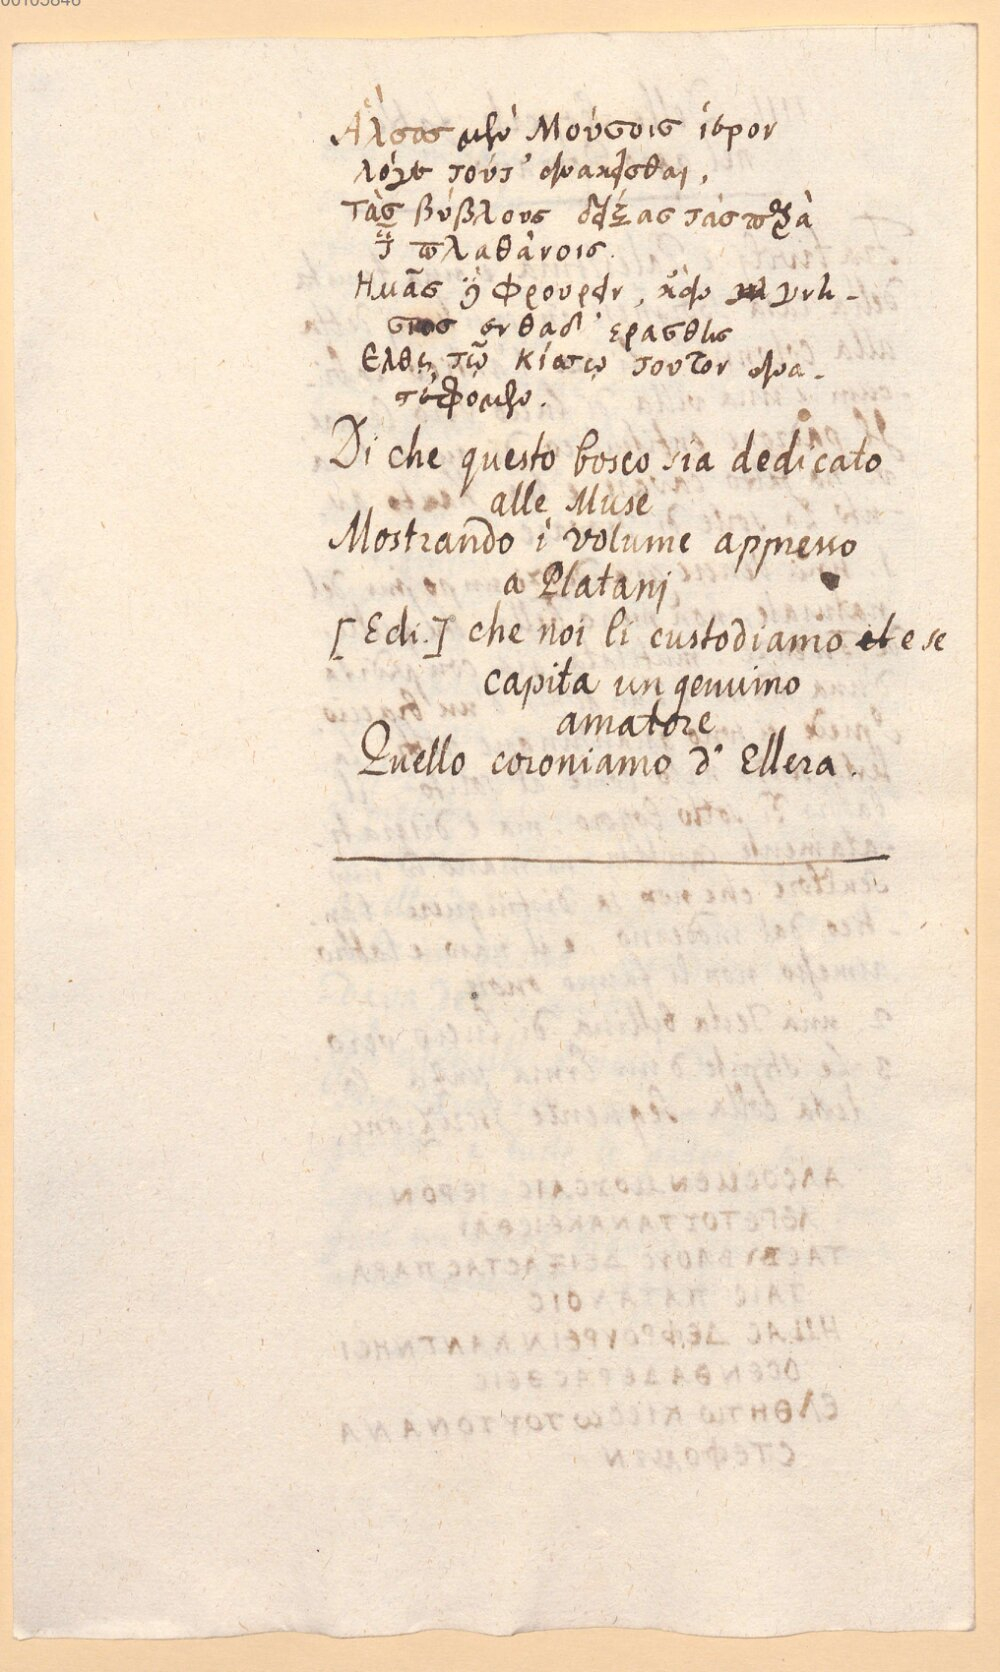 00105846
Ἄλσος μὲν Μούσοις ἱερον
λέγε τοῦτ' ἀνακεῖσθαι,
τὰς βύβλους δείξας τὰς παρὰ
πλαθάνοις.
Ημᾶς δὲ φρουρεῖν, κἂν γνή-
σιος ενθαδ' ερασθὴς
Ελθῃ, τῷ κίσσῳ τουτον ανα-
στέφομεν.
Di che questo bosco sia dedicato
alle Muse
Mostrando i volume appresso
a Platani
[Edi.] che noi li custodiamo et e se
capita un genuino
amatore
Quello coroniamo d' Ellera.